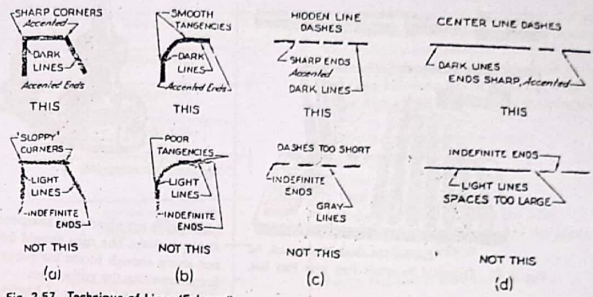 SHARP CORNERS
Accented
DARK
LINES
Accented Ends
THIS
SMOOTH
TANGENCIES
DARK
LINES
Accented Ends
THIS
HIDDEN LINE
DASHES
SHARP ENDS
Accented
DARK LINES
THIS
CENTER LINE DASHES
DARK LINES
ENDS SHARP, Accented
THIS
'SLOPPY'
CORNERS
LIGHT
LINES
INDEFINITE
ENDS
NOT THIS
(a)
POOR
TANGENCIES
LIGHT
LINES
INDEFINITE
ENDS
NOT THIS
(b)
DASHES TOO SHORT
INDEFINITE
ENDS
GRAY
LINES
NOT THIS
(c)
INDEFINITE ENDS
LIGHT LINES
SPACES TOO LARGE
NOT THIS
(d)
Fig. 2.57 Technique of Lines